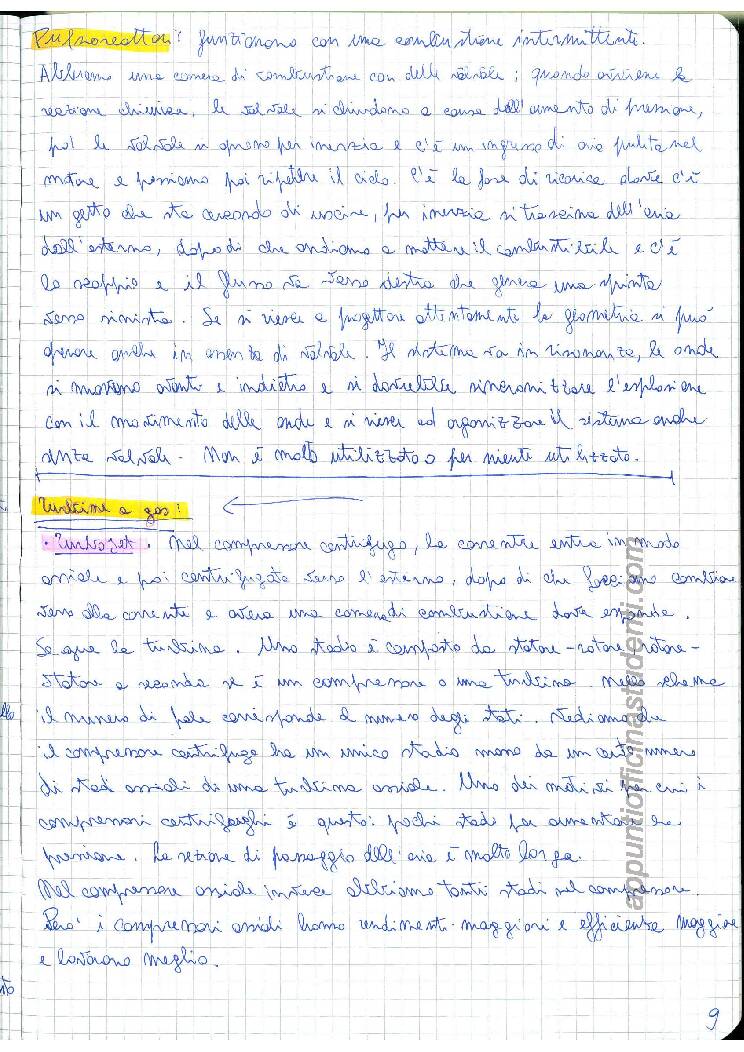 Pulsoreattori: funzionano con una combustione intermittente.
Abbiamo una camera di combustione con delle valvole; quando avviene la
reazione chimica, le valvole si chiudono a causa dell'aumento di pressione,
poi le valvole si aprono per inerzia e c'è un ingresso di aria pulita nel
motore e possiamo poi ripetere il ciclo. C'è la fase di ricarica dove c'è
un getto che sta cercando di uscire, per inerzia si trascina dell'aria
dall'esterno, dopodi che andiamo a mettere il combustibile e c'è
lo scoppio e il flusso va verso destra che genera una spinta
verso sinistra. Se si riesce a progettare attentamente la geometria si può
operare anche in assenza di valvole. Il sistema va in risonanza, le onde
si muovono avanti e indietro e si dovrebbe sincronizzare l'esplosione
con il movimento delle onde e si riesce ad organizzare il sistema anche
senza valvole. Non è molto utilizzato o per niente utilizzato.
Turbine a gas:
• Turbojet. Nel compressore centrifugo, la corrente entra in modo
assiale e poi centrifugata verso l'esterno, dopo di che facciamo
verso alla corrente e avere una camera di combustione dove espande.
Segue la turbina. Uno stadio è composto da statore-rotore/rotore-
statore a seconda se è un compressore o una turbina. Nello schema
il numero di pale corrisponde al numero degli stadi. Vediamo che
il compressore centrifugo ha un unico stadio mono da un certo numero
di stadi assiali di una turbina assiale. Uno dei motivi per cui i
compressori centrifughi è questo: pochi stadi per aumentare la
pressione. La sezione di passaggio dell'aria è molto larga.
Nel compressore assiale invece abbiamo tanti stadi nel compressore.
Però i compressori assiali hanno rendimenti maggiori e efficienza maggiore
e lavorano meglio.
appuntiofficinastudenti.com
9